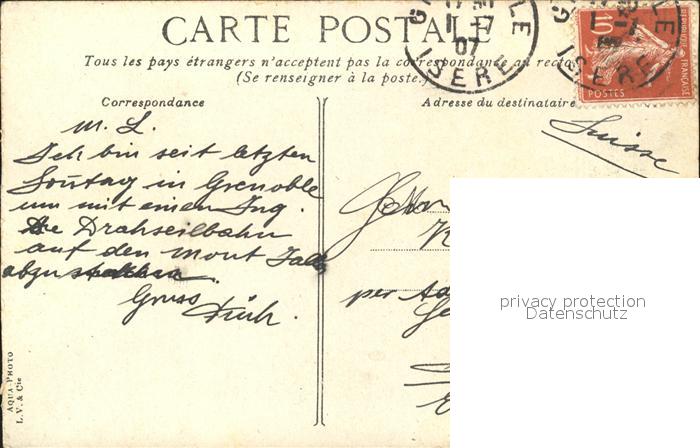 CARTE POSTALE
Tous les pays étrangers n'acceptent pas la correspondance au recto
(Se renseigner à la poste.)
Correspondance
Adresse du destinataire
GRENOBLE
07
ISERE
10
POSTES
Suisse
M. L.
Ich bin seit letzten
Sontag in Grenoble
um mit einem Ing.
Drahseilbahn
auf den Mont Jalla
abzustecken.
Gruss
Herrn
per
privacy protection
Datenschutz
AQUA-PHOTO
L.V. & Cie